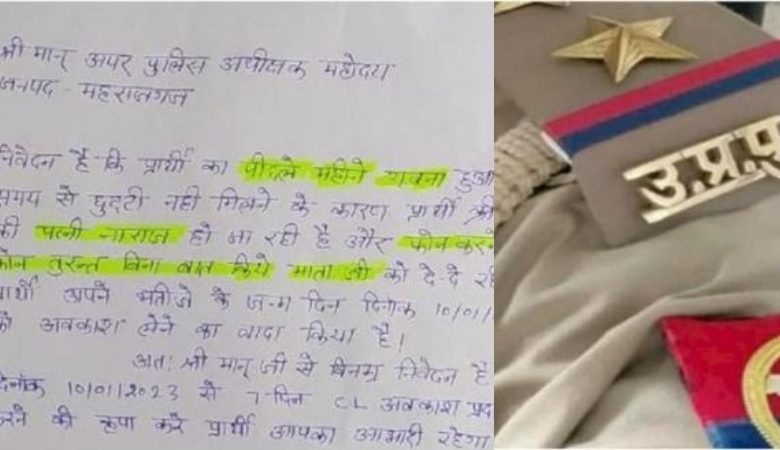 श्री मान् अपर पुलिस अधीक्षक महोदय
जनपद - महराजगंज
निवेदन है कि प्रार्थी का पीछले महीने गवना हुआ
समय से छुट्टी नही मिलने के कारण प्रार्थी श्री
की पत्नी नाराज हो जा रही है और फोन करने
फोन तुरन्त बिना बात किये माता जी को दे-दे
प्रार्थी अपने भतीजे के जन्म दिन दिनांक 10/01/
को अवकाश लेने का वादा किया है।
अतः श्री मान् जी से विनम्र निवेदन है
दिनांक 10/01/2023 से 7-दिन CL अवकाश
करने की कृपा करे प्रार्थी आपका आभारी रहेगा
उ.प्र.पु